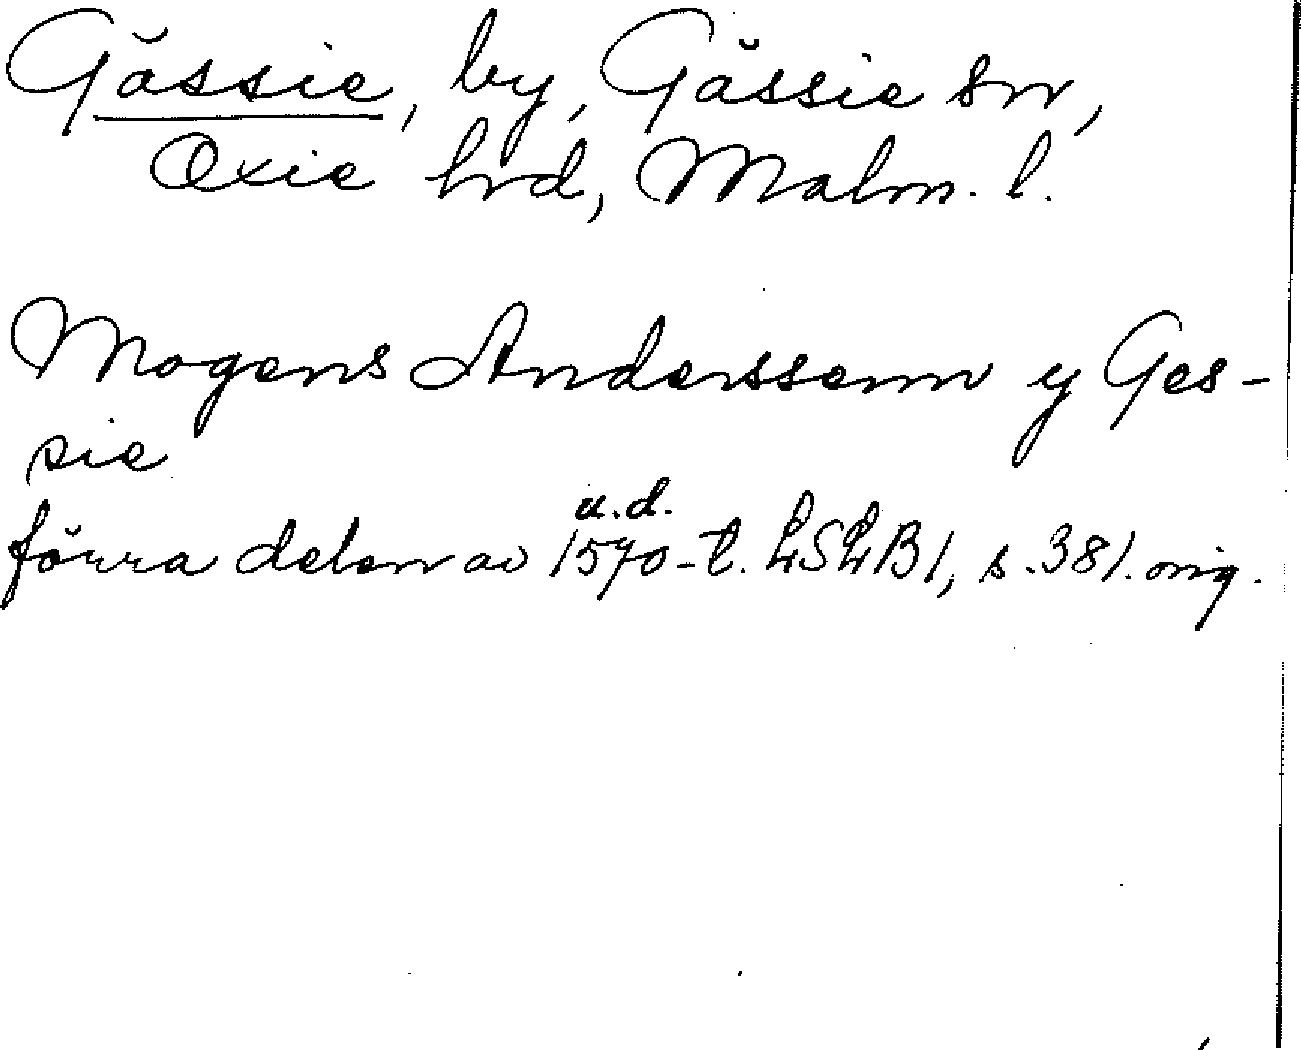 Gässie, by, Gässie sn,
Oxie hd, Malm. l.
Mogens Anderssenn y Ges-
sie
u.d.
förra delen av 1570-t. LSLB1, s. 381. orig.